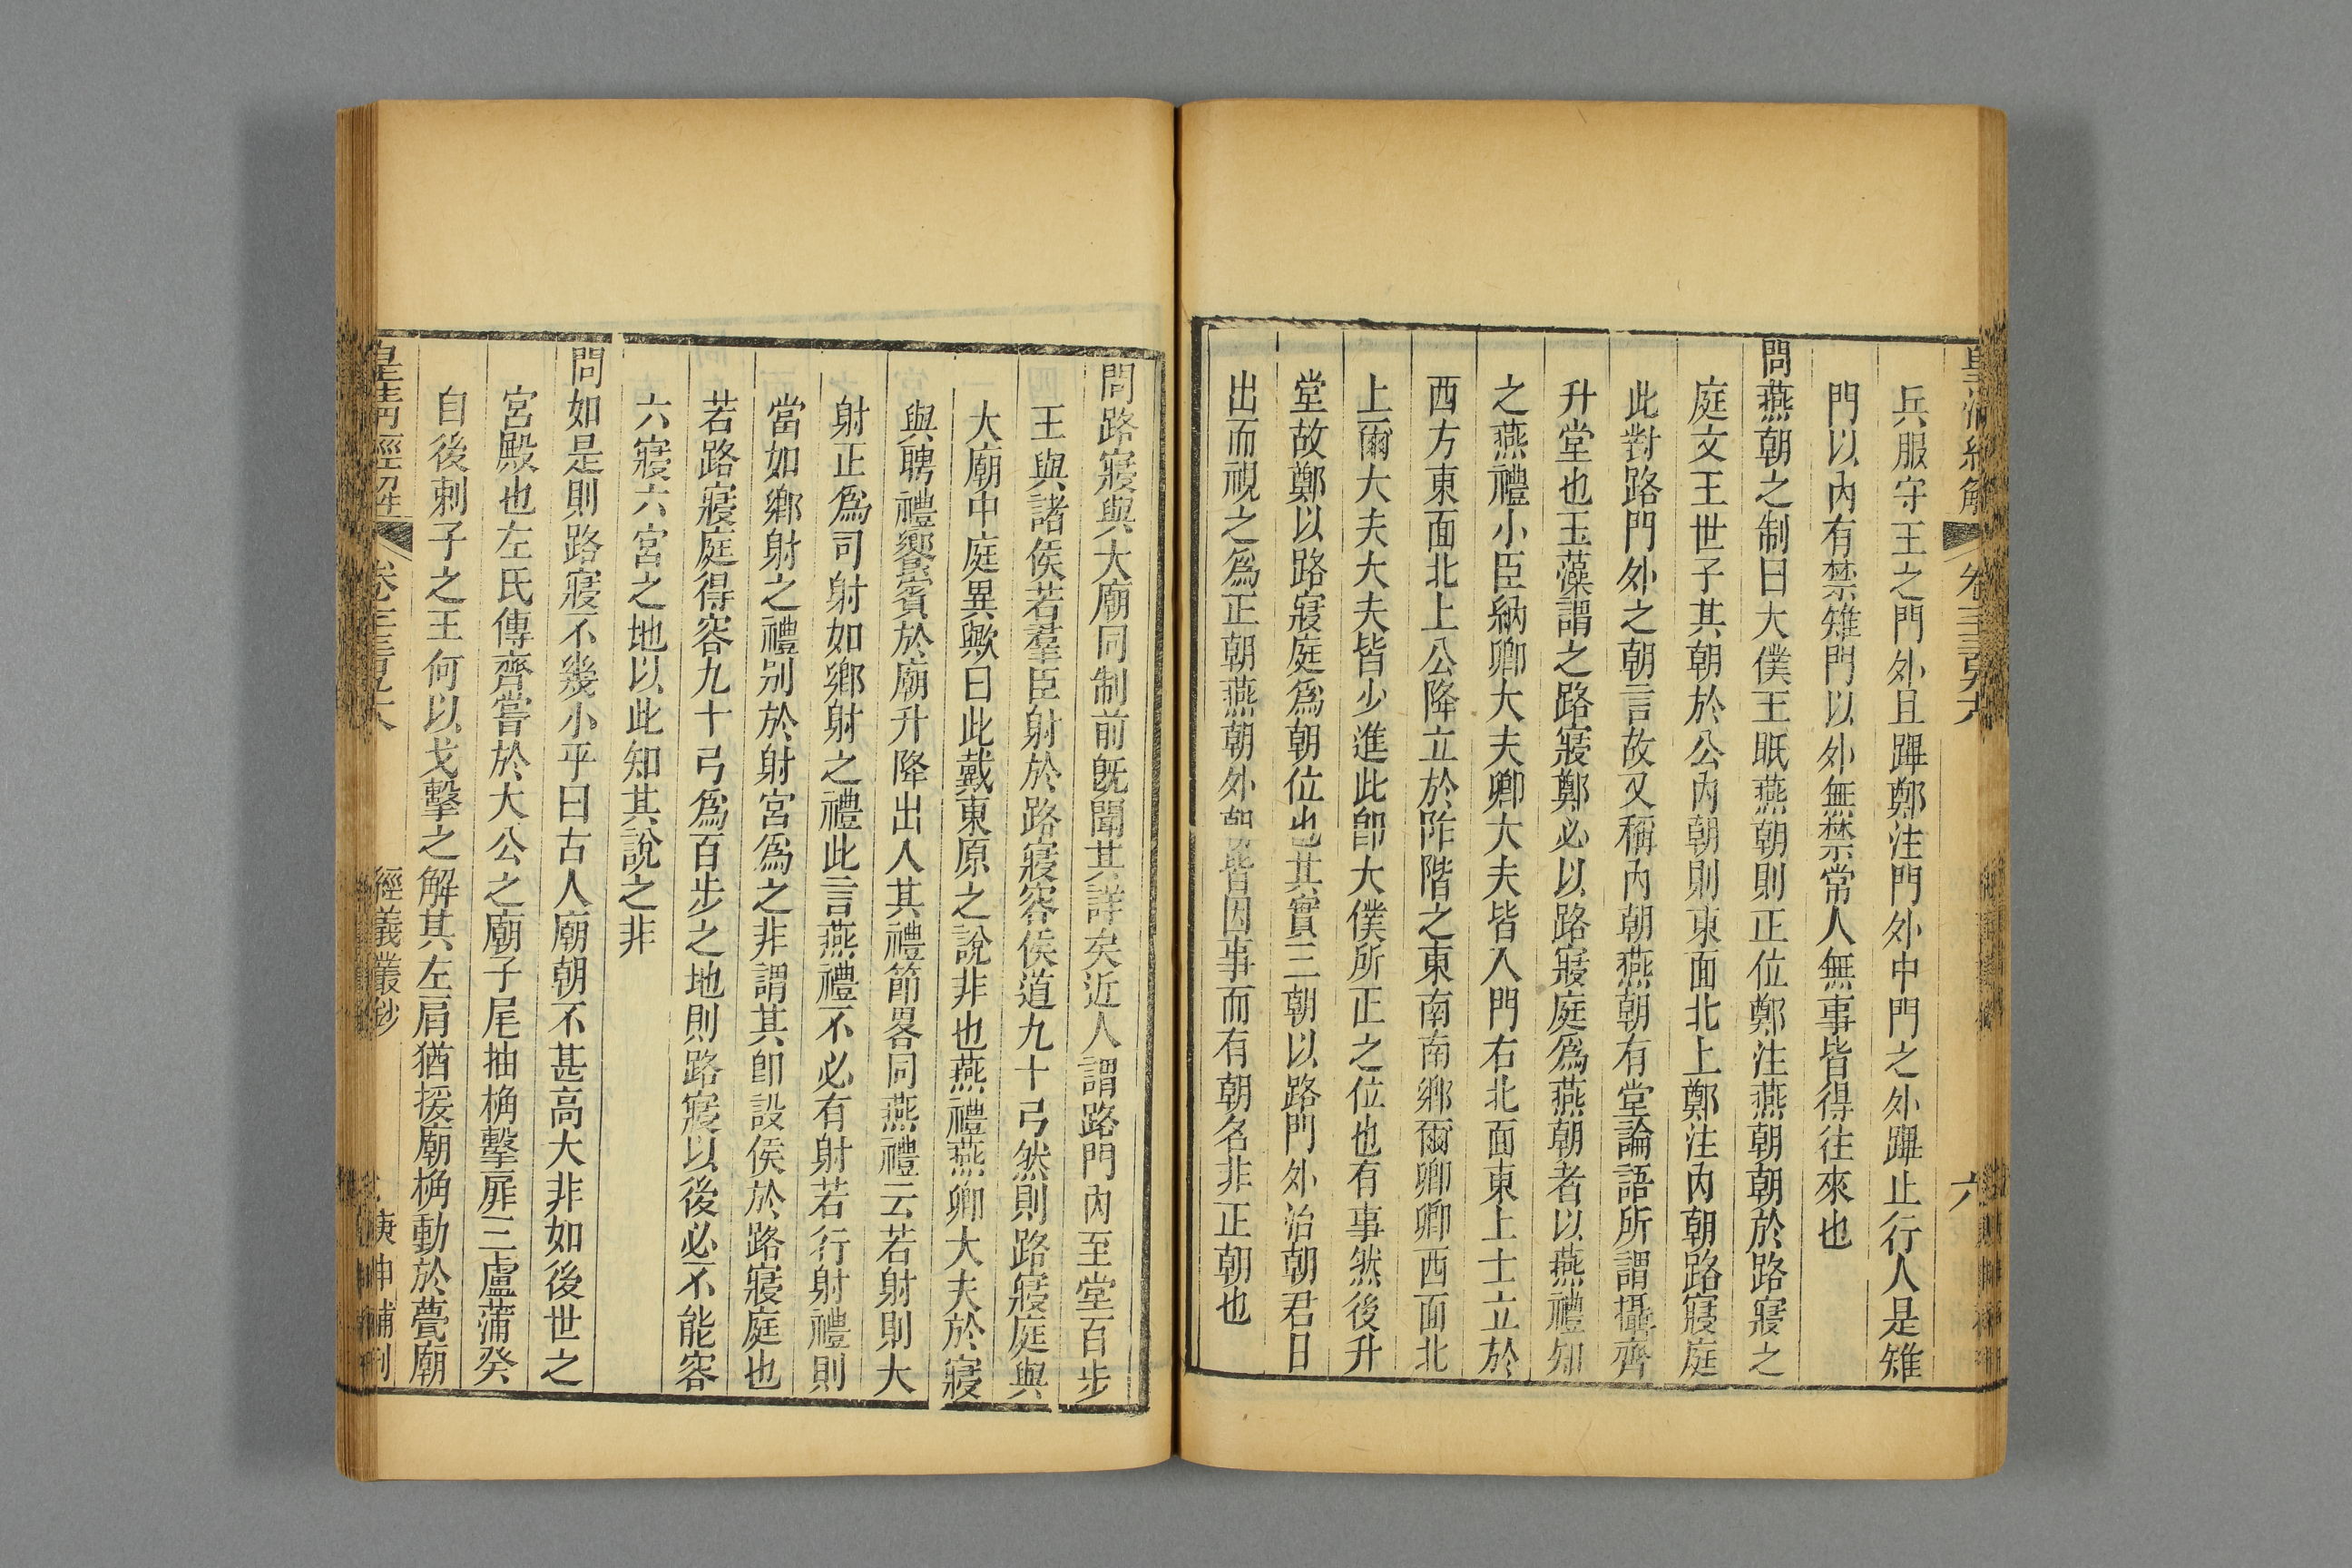 兵服守王之門外且蹕鄭注門外中門之外蹕止行人是雉
門以內有禁雉門以外無禁常人無事皆得往來也
問燕朝之制曰大僕王眡燕朝則正位鄭注燕朝朝於路寢之
庭文王世子其朝於公內朝則東面北上鄭注內朝路寢庭
此對路門外之朝言故又稱內朝燕朝有堂論語所謂攝齊
升堂也玉藻謂之路寢鄭必以路寢庭爲燕朝者以燕禮知
之燕禮小臣納卿大夫卿大夫皆入門右北面東上士立於
西方東面北上公降立於阼階之東南南鄉爾卿卿西面北
上爾大夫大夫皆少進此卽大僕所正之位也有事然後升
堂故鄭以路寢庭爲朝位也其實三朝以路門外治朝君日
出而視之爲正朝燕朝外朝皆因事而有朝名非正朝也
六
問路寢與大廟同制前旣聞其詳矣近人謂路門內至堂百步
王與諸侯若羣臣射於路寢容侯道九十弓然則路寢庭與
大廟中庭異歟曰此戴東原之說非也燕禮燕卿大夫於寢
與聘禮饗賓於廟升降出入其禮節畧同燕禮云若射則大
射正爲司射如鄉射之禮此言燕禮不必有射若行射禮則
當如鄉射之禮別於射宮爲之非謂其卽設侯於路寢庭也
若路寢庭得容九十弓爲百步之地則路寢以後必不能容
六寢六宮之地以此知其說之非
問如是則路寢不幾小乎曰古人廟朝不甚高大非如後世之
宮殿也左氏傳齊嘗於大公之廟子尾抽桷擊扉三盧蒲癸
自後刺子之王何以戈擊之解其左肩猶援廟桷動於甍廟
皇清經解
經義叢鈔
庚申補刊